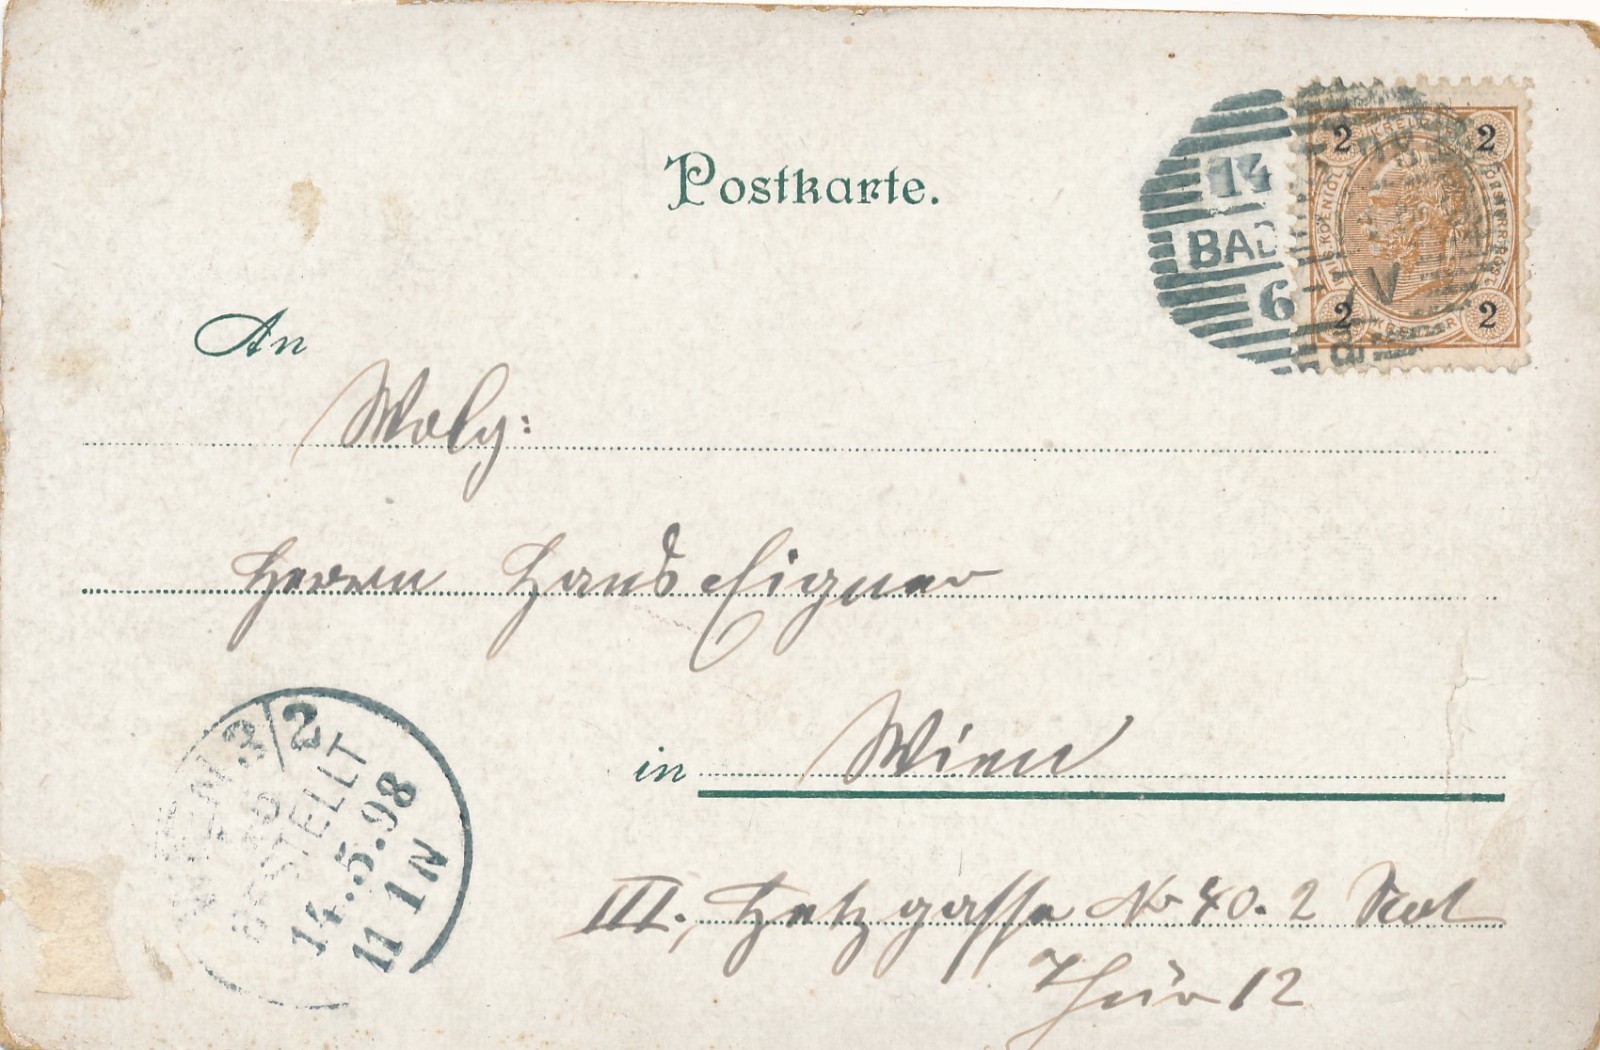 Postkarte.
2 2
14
BAD
6 V
2 2
An
Wolg:
Herrn Hans Eigner
in Wien
III. Hetzgasse No 40. 2 Stock
Thür 12
WIEN 3/2
BESTELLT
14.5.98
11 1N